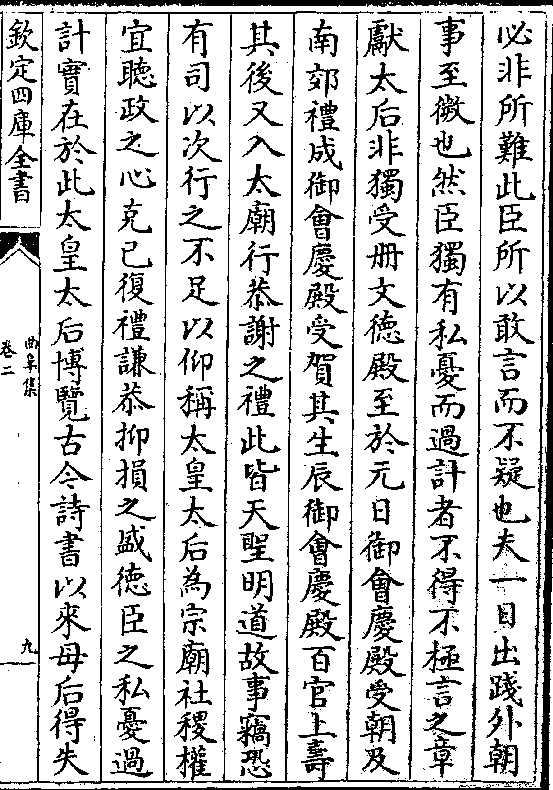 必非所難此臣所以敢言而不疑也夫一日出踐外朝
事至微也然臣獨有私憂而過計者不得不極言之章
獻太后非獨受册文德殿至於元日御會慶殿受朝及
南郊禮成御會慶殿受賀其生辰御會慶殿百官上壽
其後又入太廟行恭謝之禮此皆天聖明道故事竊恐
有司以次行之不足以仰稱太皇太后為宗廟社稷權
宜聽政之心克已復禮謙恭抑損之盛德臣之私憂過
計實在於此太皇太后博覽古今詩書以來母后得失
欽定四庫全書
曲阜集
卷二
九